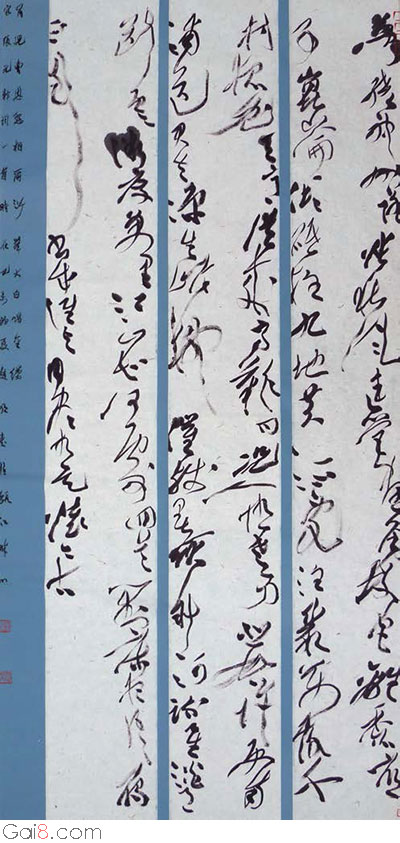 梦绕神州路怅秋风连营画角故宫离黍底
事崑崙倾砥柱九地黄流乱注聚万落千
村狐兔天意从来高难问况人情老易悲难诉更南
浦送君去凉生岸柳催残暑耿斜河疏星淡月
断云微度万里江山知何处回首对床夜语雁
不到书成谁与目尽青天怀今古
肯儿曹恩怨相尔汝举大白听金缕
宋张元幹词一首
Gai8.com